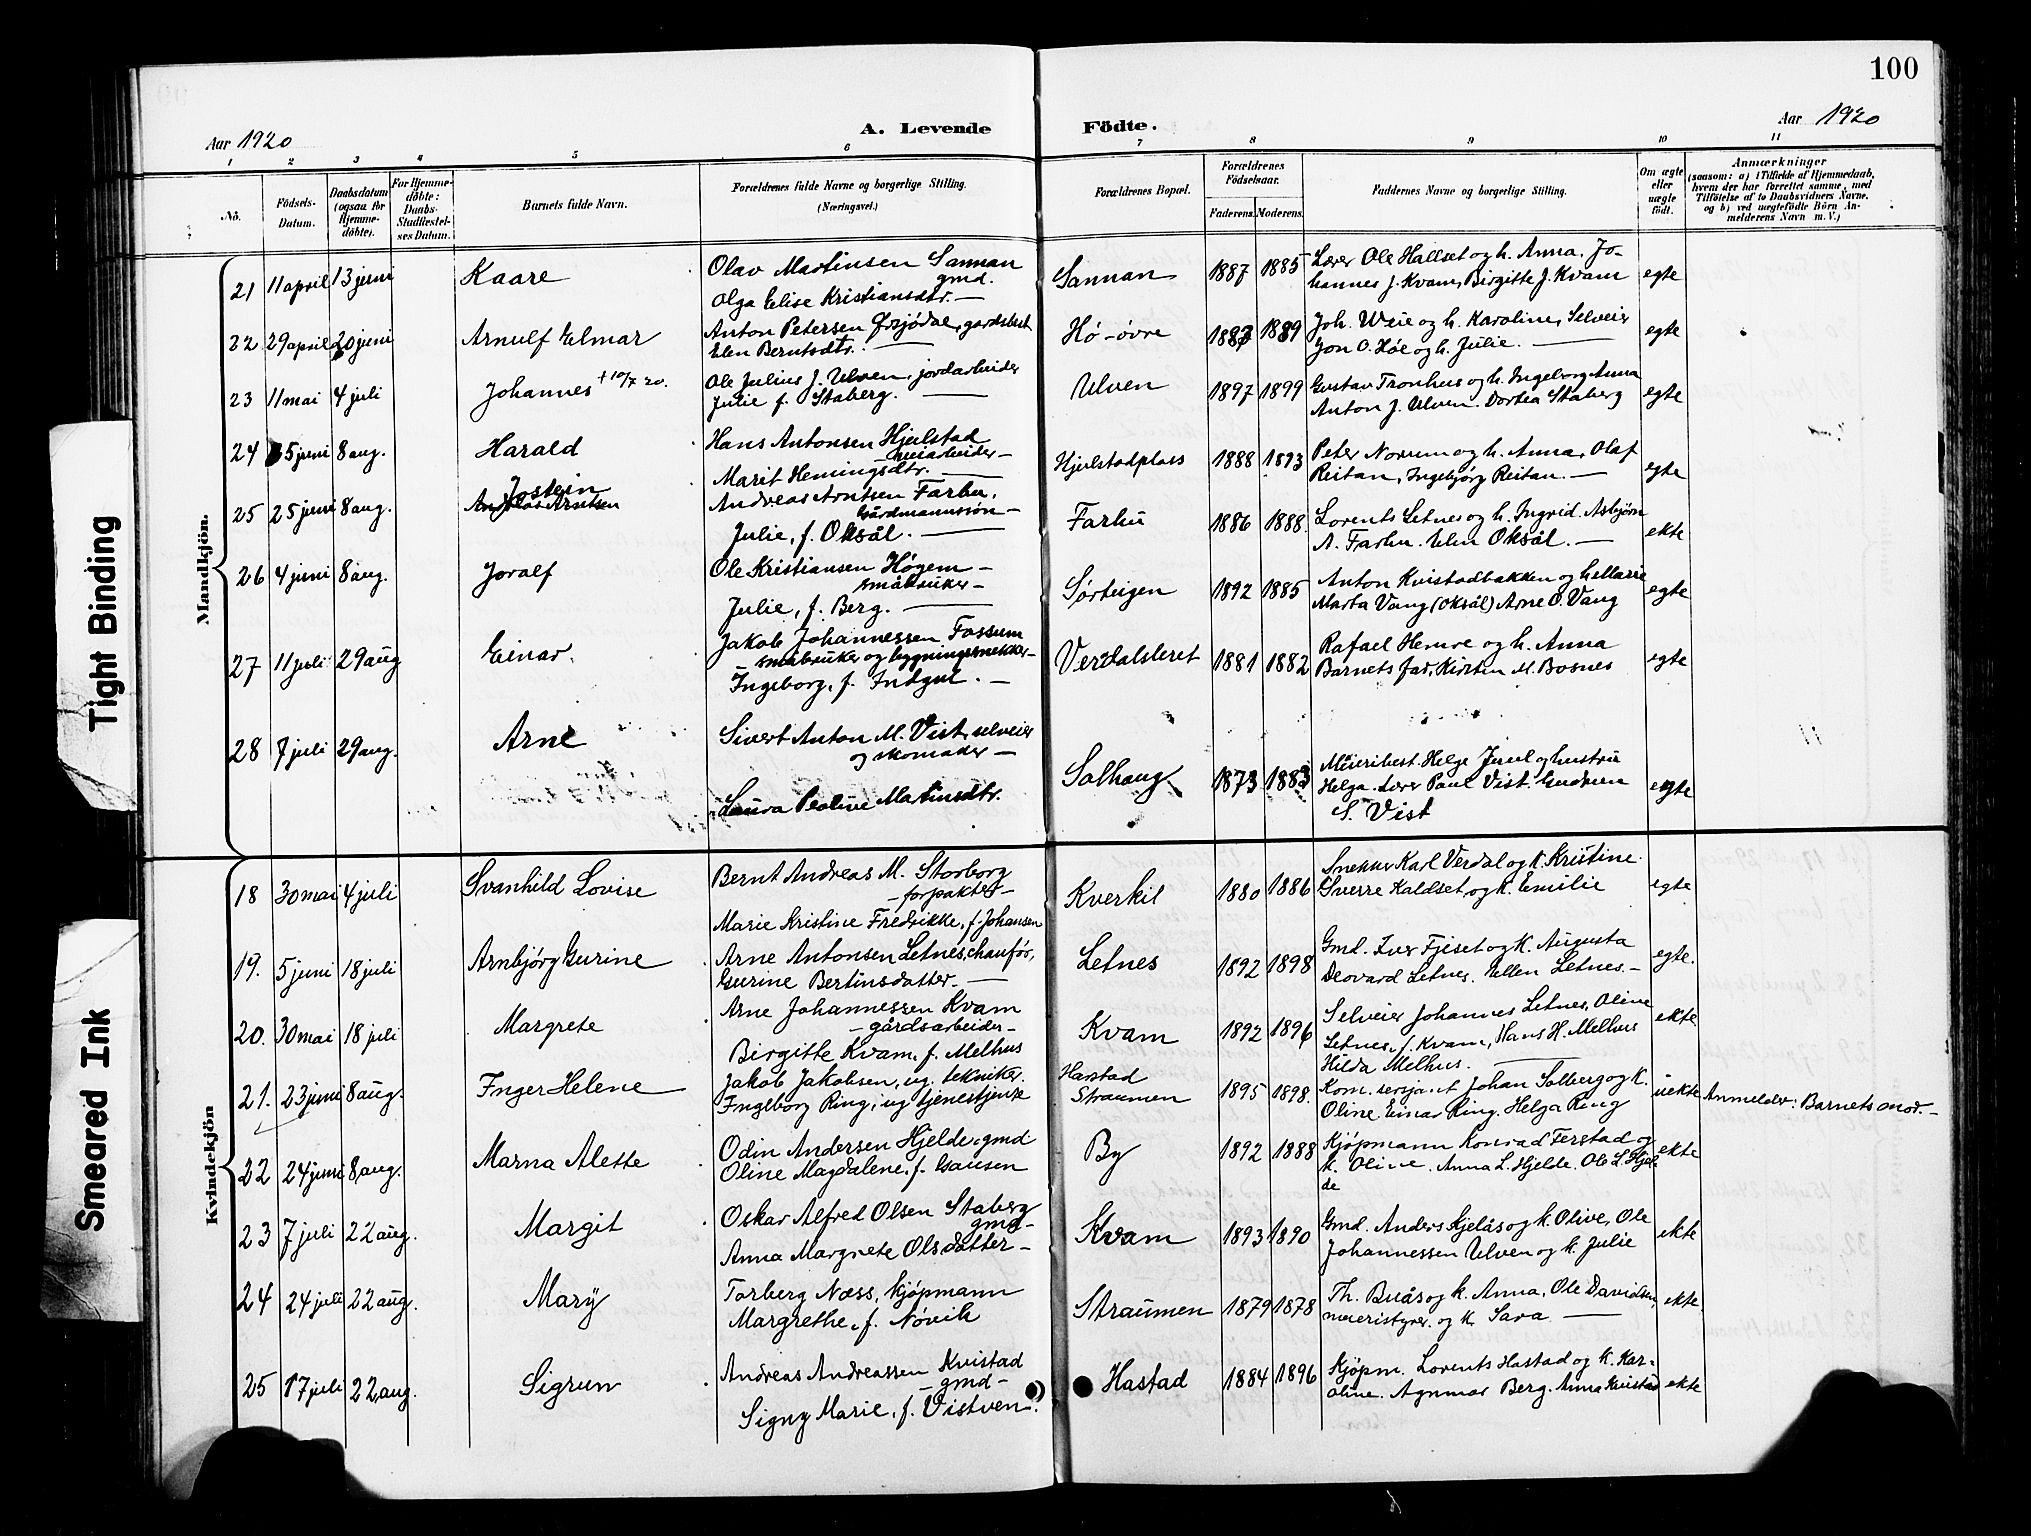 100
Aar 1920
A. Levende Födte.
Aar 1920
1 2 3 4 5 6 7 8 9 10 11
No.
Födsels-Datum.
Daabsdatum (ogsaa for Hjemme-döbte).
For Hjemme-döbte: Daabs-Stadfæstel-ses Datum.
Barnets fulde Navn.
Forældrenes fulde Navne og borgerlige Stilling.
(Næringsvei.)
Forældrenes Bopæl.
Forældrenes Födselsaar.
Faderens. Moderens.
Faddernes Navne og borgerlige Stilling.
Om ægte eller uægte födt.
Anmærkninger
(saasom: a) i Tilfælde af Hjemmedaab,
hvem der har forrettet samme, med
Tilföielse af to Daabsvidners Navne,
og b) ved uægtefödte Börn An-
melderens Navn m. V.)
Mandkjön.
21 11 april 13 juni Kaare
Olav Martinsen Sannan
gmd.
Olga Elise Kristiansdtr. —
Sannan 1887 1885
Lærer Ole Hallset og h. Anna. Jo-
hannes J. Kvam, Birgitte J. Kvam
egte
22 29 april 20 juni Arnulf Elmar
Anton Petersen Ørsjødal, gardsbest
Elen Berntsdtr. —
Hø-øvre 1883 1889
Joh. Weie og h. Karoline, Selveier
Jon O. Høe og h. Julie. —
egte
23 11 mai 4 juli Johannes † 10/7 20.
Ole Julius J. Ulven, jordarbeider
Julie f. Staberg. —
Ulven 1897 1899
Gustav Tronhus og h. Ingeborg Anna
Anton J. Ulven. Dortea Staberg
egte
24 5 juni 8 aug. Harald
Hans Antonsen Hjelstad
Marit Hemingsdtr. —
Hjelstadplass 1888 1893
Peter Norum og h. Anna, Olaf
Reitan, Ingebjørg Reitan. —
egte
25 25 juni 8 aug. Jostein
Andreas Arntsen
Andreas Arntsen Farhu,
Gårdmannssøn —
Julie, f. Oksål. —
Farhu 1886 1888.
Lorents Letnes og h. Ingrid. Asbjørn
A. Farhu. Elen Oksål. —
ekte
26 4 juni 8 aug. Joralf
Ole Kristiansen Høgem —
småbruker —
Julie, f. Berg. —
Sørteigen 1892 1885
Anton Kvistadbakken og h. Marie
Marta Vang (Oksål) Arne O. Vang
egte
27 11 juli 29 aug Einar.
Jakob Johannessen Fossum
småbruker og bygningssnekker —
Ingeborg, f. Indgul. —
Verdalsleret 1881 1882
Rafael Hemre og h. Anna
Barnets far, Kirsten M. Bosnes
egte
28 7 juli 29 aug. Arne
Sivert Anton M. Vist, selveier
og skomaker —
Laura Peoline Martinsdtr.
Solhaug 1873 1883
Meieribest. Helge Juul og hustru
Helga. Lærer Paul Vist. Gudrun
S. Vist
egte
Kvindekjön
18 30 mai 4 juli Svanhild Lovise
Bernt Andreas M. Storborg
— forpakter —
Marie Kristine Fredrikke, f. Johansen
Kverkil 1880 1886
Snekker Karl Verdal og k. Kristine.
Sverre Kaldset, og k. Emilie
egte
19. 5 juni 18 juli Arnbjørg Gurine
Arne Antonsen Letnes, chauffør,
Gurine Bertinsdatter. —
Letnes 1892 1898
Gmd. Iver Fjeset og k. Augusta
Deovard Letnes. Ellen Letnes. —
egte.
20. 30 mai 18 juli Margrete
Arne Johannessen Kvam
— gårdsarbeider —
Birgitte Kvam, f. Melhus
Kvam 1892 1896
Selveier Johannes Letnes, Oline
Letnes, f. Kvam, Hans H. Melhus
Hilda Melhus. —
ekte
21. 23 juni 8 aug. Inger Helene
Jakob Jakobsen, ug. tekniker.
Ingeborg Ring, ug tjenestjente
Hastad
Straumen 1895 1898.
Kom. sersjant Johan Solberg og k.
Oline. Einar Ring. Helga Ring
uekte Anmelder: Barnets mor. —
22 24 juni 8 aug. Marna Alette
Odin Andersen Hjelde, gmd
Oline Magdalene, f. Gausen
By 1892 1888
Kjøpmann Konrad Ferstad og
k. Oline. Anna L. Hjelde. Ole L. Hjel-
de
ekte
23 7 juli 22 aug. Margit
Oskar Alfred Olsen Staberg
gmd —
Anna Margrete Olsdatter —
Kvam 1893 1890
Gmd. Anders Kjelås og k. Olive, Ole
Johannessen Ulven og k. Julie
ekte
24 24 juli 22 aug. Mary
Torberg Næss, kjøpmann
Margrethe, f. Nøvik
Straumen 1879 1878
Th. Buås og k. Anna, Ole Davidsen,
meieristyrer, og k. Sara. —
ekte
25 17 juli 22 aug. Sigrun
Andreas Andreassen Kvistad
— gmd —
Signy Marie, f. Vistven.
Hastad 1884 1896
Kjøpm. Lorents Hastad og k. Kar-
oline. Agnmar Berg. Anna Kvistad
ekte
Tight Binding
Smeared Ink